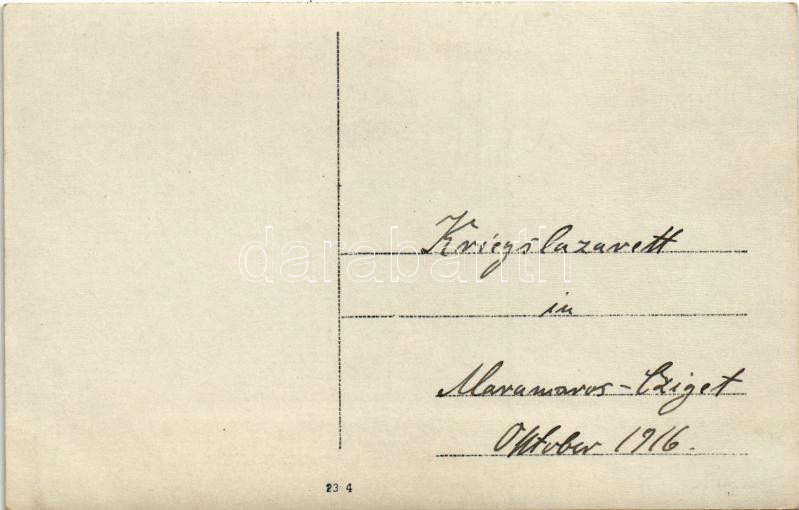 Kriegslazarett
darabanth
in
Maramaros-Sziget
Oktober 1916.
23 4